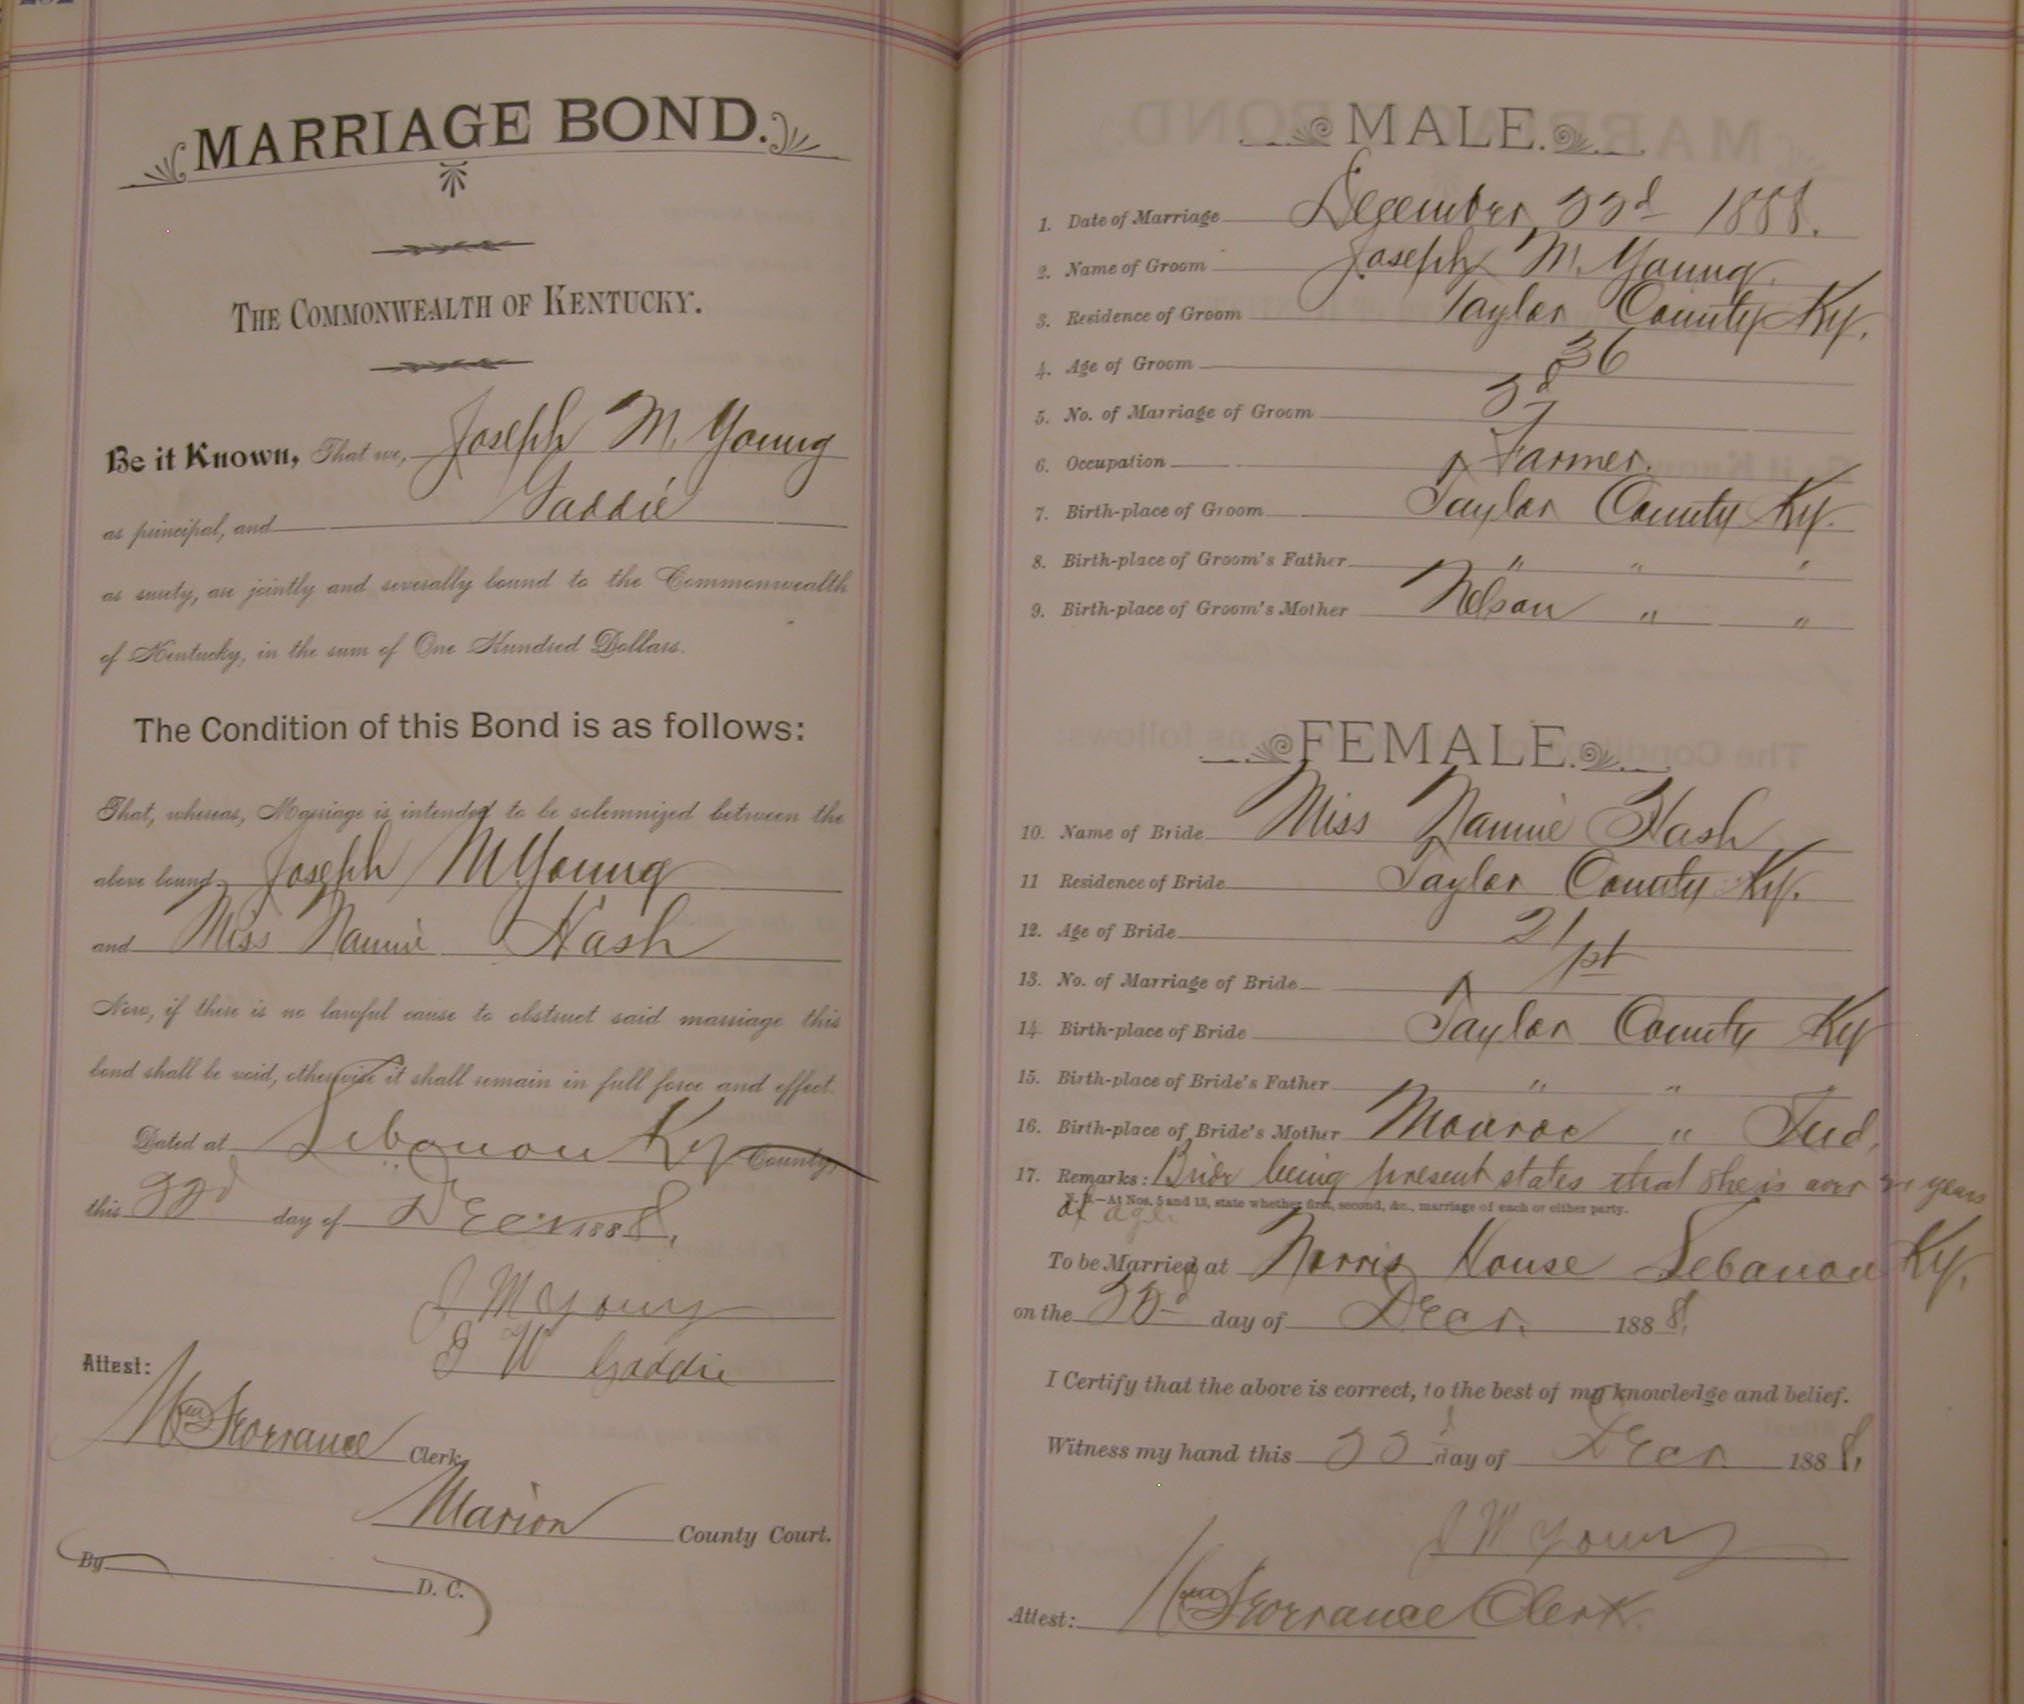 MARRIAGE BOND.
THE COMMONWEALTH OF KENTUCKY.
Be it Known, That we, Joseph M. Young
as principal, and Gaddie
as surety, are jointly and severally bound to the Commonwealth
of Kentucky, in the sum of One Hundred Dollars.
The Condition of this Bond is as follows:
That, whereas, Marriage is intended to be solemnized between the
above bound Joseph M Young
and Miss Nannie Hash
Now, if there is no lawful cause to obstruct said marriage this
bond shall be void, otherwise it shall remain in full force and effect.
Dated at Lebanon Ky County,
this 22d day of Decr 1888.
J M Young
W Gaddie
Attest:
Clerk
Marion County Court.
By D. C.
MALE.
1. Date of Marriage December 22d 1888.
2. Name of Groom Joseph M. Young.
3. Residence of Groom Taylor County Ky.
4. Age of Groom 36
5. No. of Marriage of Groom 2d
6. Occupation Farmer.
7. Birth-place of Groom Taylor County Ky.
8. Birth-place of Groom's Father " " "
9. Birth-place of Groom's Mother Nelson " "
FEMALE.
10. Name of Bride Miss Nannie Hash
11 Residence of Bride Taylor County Ky.
12. Age of Bride 21
13. No. of Marriage of Bride 1st
14 Birth-place of Bride Taylor County Ky
15. Birth-place of Bride's Father " " "
16. Birth-place of Bride's Mother Monroe "
17. Remarks: Bride being present states that she is over 21 years
N. B.—At Nos. 5 and 13, state whether first, second, &c., marriage of each or either party.
of age.
To be Married at Norris House Lebanon Ky.
on the 22d day of Decr. 1888.
I Certify that the above is correct, to the best of my knowledge and belief.
Witness my hand this 22d day of Decr 1888,
J M Young
Attest: Clerk.